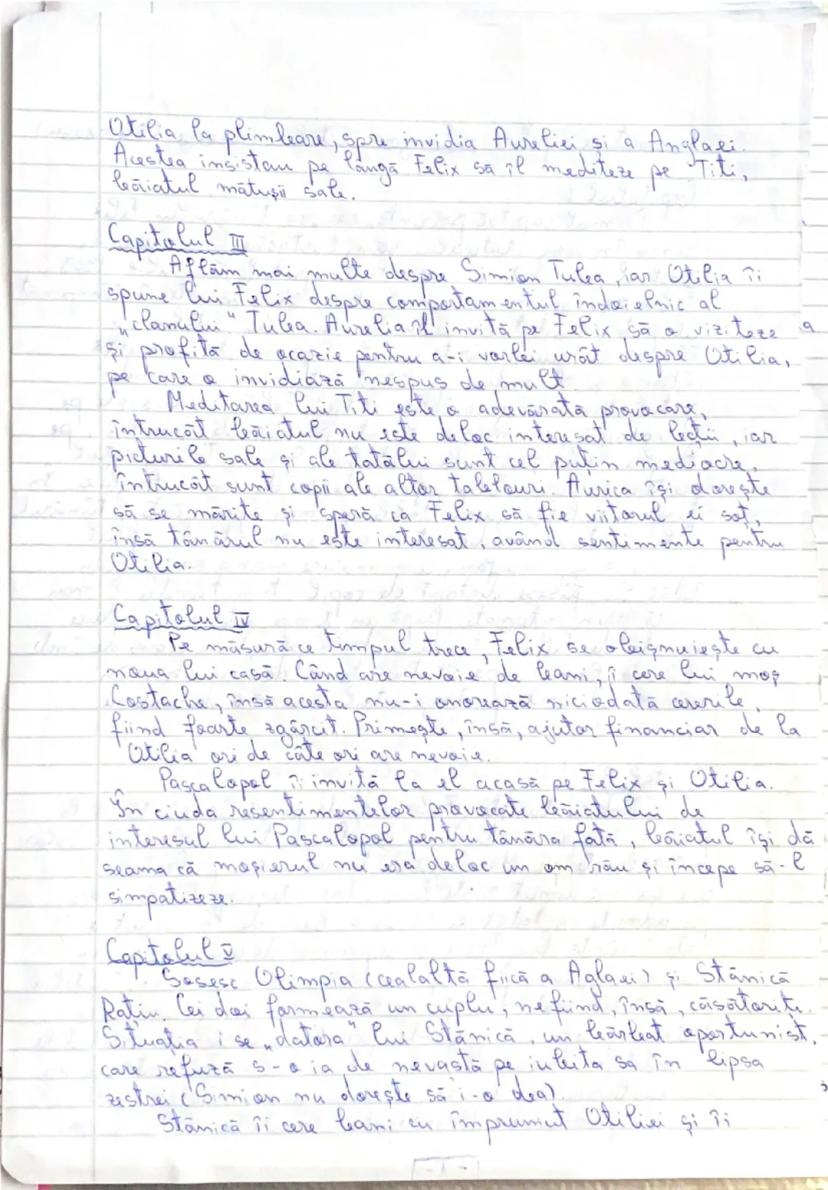 Otilia la plimbare, spre invidia Aureliei și a Anglaei.
Acestea insistau pe lângă Felix să îl mediteze pe Titi,
băiatul mătușii sale.
Capitolul III
Aflăm mai multe despre Simion Tulea, iar Otilia îi
spune lui Felix despre comportamentul îndoielnic al
"clanului" Tulea. Aurelia îl invită pe Felix să o viziteze a
și profită de ocazie pentru a-i vorbi urât despre Otilia,
pe care o invidiază nespus de mult.
Meditarea lui Titi este o adevărată provocare,
întrucât băiatul nu este deloc interesat de lecții, iar
picturile sale și ale tatălui sunt cel puțin mediocre,
întrucât sunt copii ale altor tablouri. Aurica își dorește
să se mărite și speră ca Felix să fie viitorul ei soț,
însă tânărul nu este interesat, având sentimente pentru
Otilia.
Capitolul IV
Pe măsură ce timpul trece, Felix se obișnuiește cu
noua lui casă. Când are nevoie de bani, îi cere lui moș
Costache, însă acesta nu-i onorează niciodată cererile,
fiind foarte zgârcit. Primește, însă, ajutor financiar de la
Otilia ori de câte ori are nevoie.
Pascalopol îi invită la el acasă pe Felix și Otilia.
În ciuda resentimentelor provocate băiatului de
interesul lui Pascalopol pentru tânăra fată, băiatul își dă
seama că moșierul nu era deloc un om rău și începe să-l
simpatizeze.
Capitolul V
Sosesc Olimpia (cealaltă fiică a Aglaei) și Stănică
Rațiu. Cei doi formează un cuplu, nefiind, însă, căsătoriți.
Situația i se "datora" lui Stănică, un bărbat oportunist,
care refuză s-o ia de nevastă pe iubita sa în lipsa
zestrei (Simion nu dorește să i-o dea).
Stănică îi cere bani cu împrumut Otiliei și îi
-1-